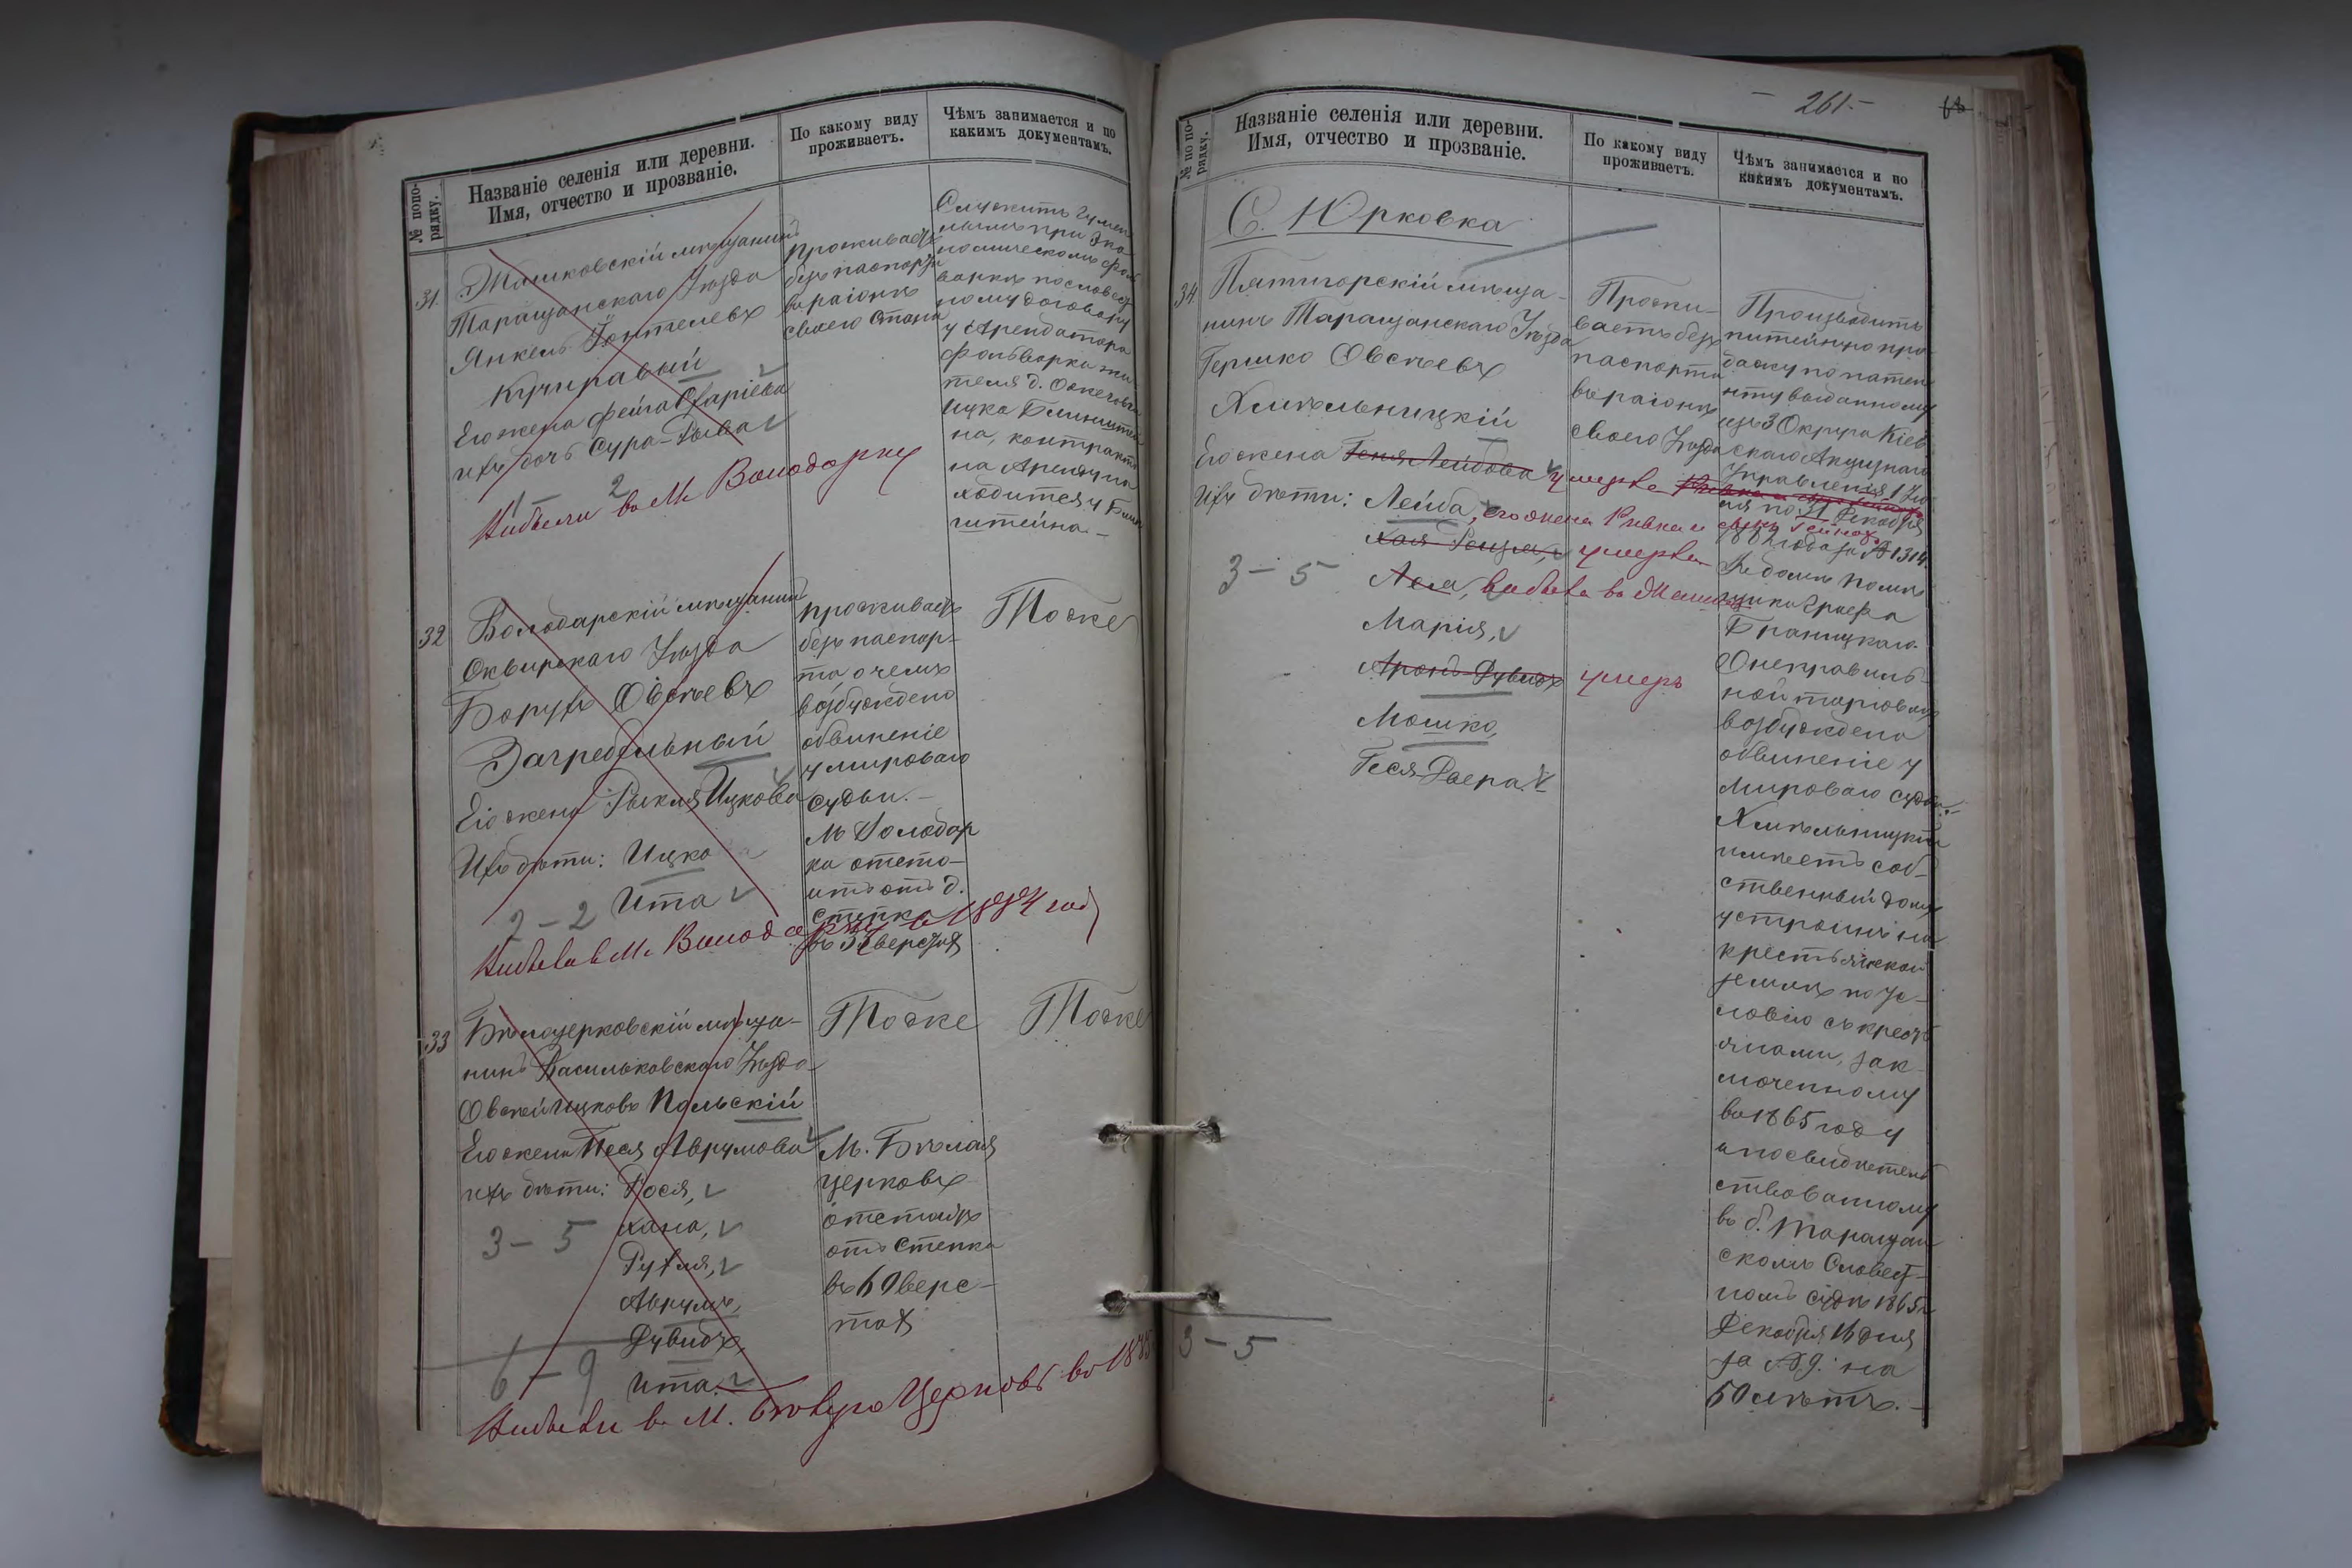 № попо-
рядку.
Названіе селенія или деревни.
Имя, отчество и прозваніе.
По какому виду
проживаетъ.
Чѣмъ занимается и по
какимъ документамъ.
31.
Жашковскій мѣщанинъ
Таращанскаго Уѣзда
Янкель
Кучправый
Его жена Фейга
ихъ дочь Сура-Рыва
1 — 2
Выбыли въ М. Володарку
проживаетъ
безъ паспорта
въ раіонѣ
своего Стана
Служитъ
при эко-
номическомъ фоль
варкѣ по словес
ному договору
у Арендатора
фольварка жи-
теля д.
Ицка Блинштей
на, контрактъ
на Аренду на
ходится у Блин
штейна. —
32
Володарскій мѣщанинъ
Сквирскаго Уѣзда
Борухъ Овсѣевъ
Загребельный
Его жена Рыкля Ицкова
Ихъ дѣти: Ицко
Ита
2 — 2
Выбылъ въ М. Володарку въ 1884 году
проживаетъ
безъ паспор-
та, о чемъ
возбуждено
обвиненіе
у мироваго
судьи. —
М Володар
ка отсто-
итъ отъ д.
Степка
въ 35 верстах
Тоже
33
Бѣлоцерковскій мѣща-
нинъ Васильковскаго Уѣзда
Овсѣй Ицковъ Польскій
Его жена Песя Аврумова
ихъ дѣти: Рося,
Хана,
Рухля,
Аврумъ,
Дувидъ,
Ита.
3 — 5
6 — 9
Выбыли въ М. Бѣлую Церковь въ 1885
Тоже
М. Бѣлая
церковь
отстоитъ
отъ Степка
въ 60 верс-
тах
Тоже
— 261 —
№ по по-
рядку.
Названіе селенія или деревни.
Имя, отчество и прозваніе.
По какому виду
проживаетъ.
Чѣмъ занимается и по
какимъ документамъ.
С. Юрковка
34
Пятигорскій мѣща-
нинъ Таращанскаго Уѣзда
Гершко Овсѣевъ
Хмѣльницкій
Его жена Геня Лейбова умерла
Ихъ дѣти: Лейба, его жена Ривка и сынъ
Хая умерла
Лея, выбыла въ
Марія,
Аронъ Дувидъ умеръ
Мошко,
Геся Двера.
3 — 5
Прожи-
ваетъ безъ
паспорта
въ раіонѣ
своего Уѣзда
Производитъ
питейную про
дажу по патен
ту выданному
изъ 3 Округа Кіев
скаго Акцизнаго
Управленія 1
ля по 31 Декабря
1882 года за № 1314
въ домѣ помѣ
щика Графа
Браницкаго.
О неправиль-
ной торговлѣ
возбуждено
обвиненіе у
Мироваго судьи.
Хмѣльницкій
имѣетъ соб-
ственный домъ
устроенъ на
крестьянской
землѣ по ус-
ловію съ крестъ
янами, зак-
люченному
въ 1865 году
и посвидѣтель
ствованному
въ б. Таращан
скомъ Словест-
номъ судѣ 1865 г
Декабря 16 дня
за № 9. на
50 лѣтъ. —
3 — 5